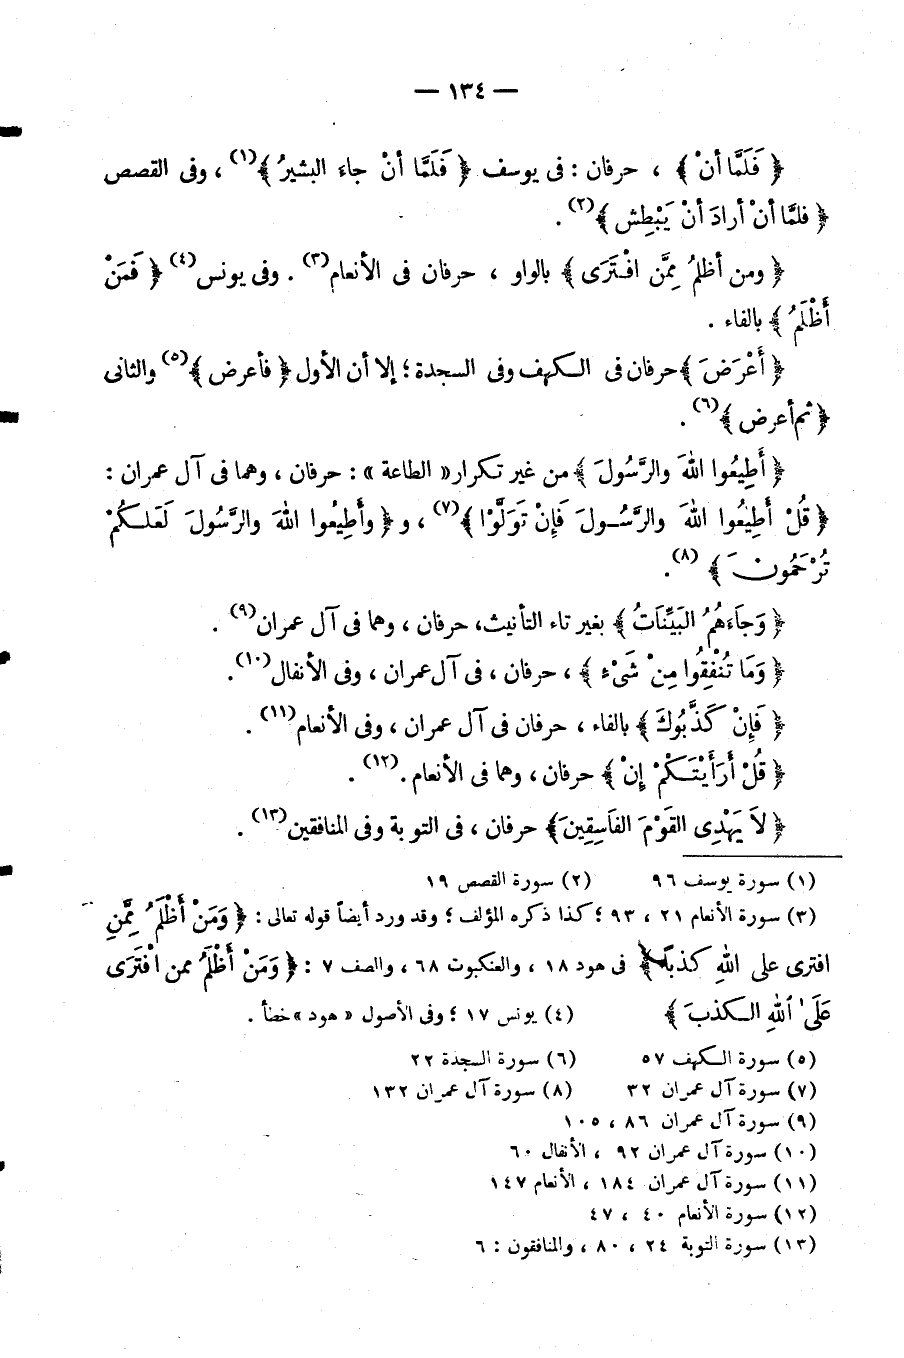 — ١٣٤ —
﴿ فَلَمَّا أنْ ﴾ ، حرفان : فى يوسف ﴿ فَلَمَّا أنْ جاءَ البشيرُ ﴾(١) ، وفى القصص
﴿ فلمَّا أنْ أرادَ أنْ يَبْطِش ﴾(٢) .
﴿ ومن أظلمُ مِمَّن افْتَرَى ﴾ بالواو ، حرفان فى الأنعام(٣) . وفى يونس(٤) ﴿ فَمَنْ
أَظْلَمُ ﴾ بالفاء .
﴿ أَعْرَضَ ﴾ حرفان فى الكهف وفى السجدة ؛ إلا أن الأول ﴿ فأعرض ﴾(٥) والثانى
﴿ ثم أعرض ﴾(٦) .
﴿ أَطِيعُوا اللهَ والرَّسُولَ ﴾ من غير تكرار « الطاعة » : حرفان ، وهما فى آل عمران :
﴿ قُلْ أَطِيعُوا اللهَ والرَّسُولَ فَإِنْ تَوَلَّوْا ﴾(٧) ، و ﴿ وأَطِيْعُوا اللهَ والرَّسُولَ لَعَلكُمْ
تُرْحَمُونَ ﴾ (٨) .
﴿ وَجَاءَهُمُ البَيِّنَاتُ ﴾ بغير تاء التأنيث، حرفان ، وهما فى آل عمران(٩) .
﴿ وَمَا تُنْفِقُوا مِنْ شَىْء ﴾ ، حرفان ، فى آل عمران ، وفى الأنفال(١٠) .
﴿ فَإِنْ كَذَّبُوكَ ﴾ بالفاء ، حرفان فى آل عمران ، وفى الأنعام(١١) .
﴿ قُلْ أَرَأَيْتَكُمْ إِنْ ﴾ حرفان ، وهما فى الأنعام .(١٢) .
﴿ لاَ يَهْدِى القَوْمَ الفَاسِقِينَ ﴾ حرفان ، فى التوبة وفى المنافقين(١٣) .
(١) سورة يوسف ٩٦ (٢) سورة القصص ١٩
(٣) سورة الأنعام ٢١ ، ٩٣ ؛ كذا ذكره المؤلف ؛ وقد ورد أيضاً قوله تعالى : ﴿ وَمَنْ أَظْلَمُ مِمَّنِ
افترى على اللهِ كذباً ﴾ فى هود ١٨ ، والعنكبوت ٦٨ ، والصف ٧ : ﴿ وَمَنْ أَظْلَمُ ممن افْتَرَى
عَلَى اللهِ الكذبَ ﴾ (٤) يونس ١٧ ؛ وفى الأصول « هود » خطأ .
(٥) سورة الكهف ٥٧ (٦) سورة السجدة ٢٢
(٧) سورة آل عمران ٣٢ (٨) سورة آل عمران ١٣٢
(٩) سورة آل عمران ٨٦ ، ١٠٥
(١٠) سورة آل عمران ٩٢ ، الأنفال ٦٠
(١١) سورة آل عمران ١٨٤ ، الأنعام ١٤٧
(١٢) سورة الأنعام ٤٠ ، ٤٧
(١٣) سورة التوبة ٢٤ ، ٨٠ ، والمنافقون : ٦